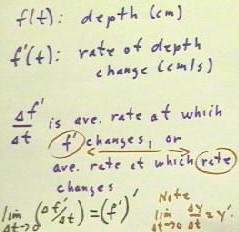 f(t): depth (cm)
f'(t): rate of depth
change (cm/s)
Δf'/Δt is ave. rate at which
f' changes, or
ave. rate at which rate
changes
lim Δt→0 (Δf'/Δt) = (f')'
Note
lim Δt→0 Δy/Δt = y'.